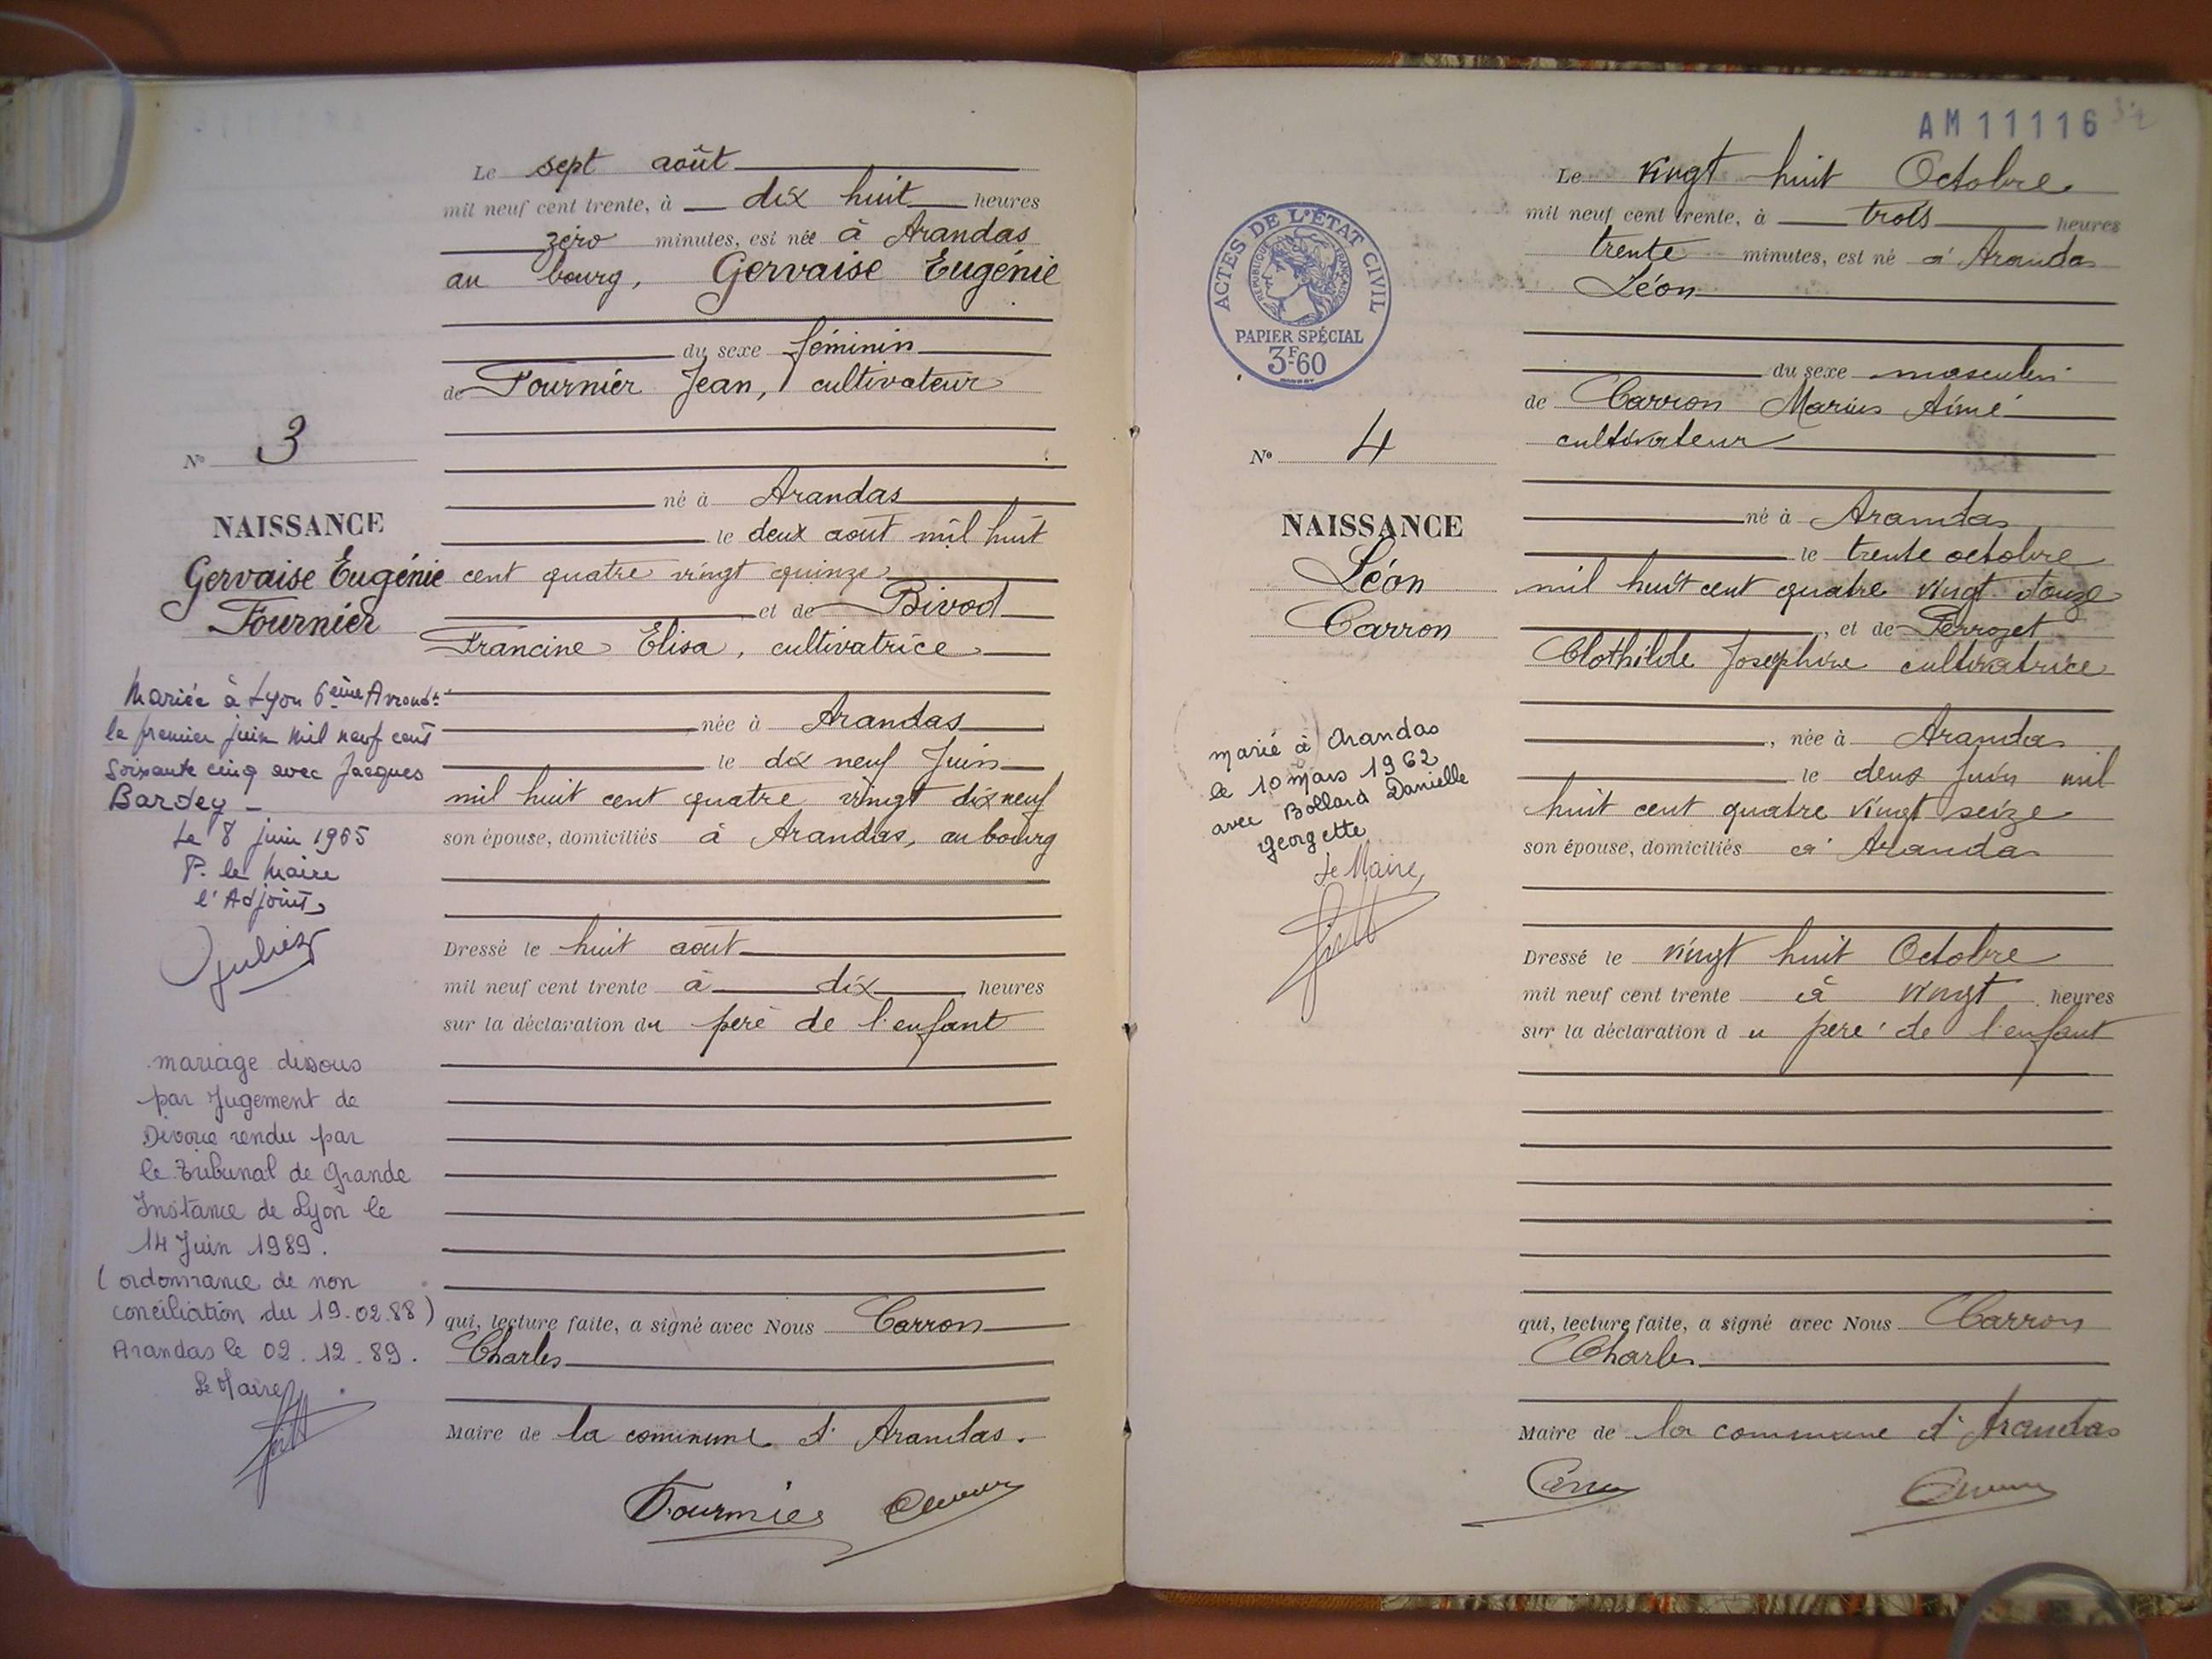 Le sept août
mil neuf cent trente, à dix huit heures
zéro minutes, est née à Arandas
au bourg, Gervaise Eugénie
du sexe féminin
de Fournier Jean, cultivateur
N° 3
né à Arandas
NAISSANCE
le deux aout mil huit
Gervaise Eugénie
cent quatre vingt quinze
Fournier
et de Bivod
Francine Elisa, cultivatrice
Mariée à Lyon 6ème Arrondt
le premier juin mil neuf cent
soixante cinq avec Jacques
Bardey -
Le 8 juin 1965
P. le Maire
l'Adjoint,
née à Arandas
le dix neuf Juin
mil huit cent quatre vingt dix neuf
son épouse, domiciliés à Arandas, au bourg
Dressé le huit aout
mil neuf cent trente à dix heures
sur la déclaration du père de l'enfant
mariage dissous
par Jugement de
Divorce rendu par
le Tribunal de Grande
Instance de Lyon le
14 Juin 1989.
(ordonnance de non
conciliation du 19.02.88)
Arandas le 02.12.89.
Le Maire
qui, lecture faite, a signé avec Nous Carron
Charles
Maire de la commune d'Arandas.
Fournier
AM11116
Le vingt huit Octobre
mil neuf cent trente, à trois heures
trente minutes, est né à Arandas
Léon
ACTES DE L'ÉTAT CIVIL
RÉPUBLIQUE FRANÇAISE
PAPIER SPÉCIAL
3F60
du sexe masculin
de Carron Marius Aimé
cultivateur
N° 4
né à Arandas
NAISSANCE
le trente octobre
Léon
mil huit cent quatre vingt douze
Carron
, et de Perrozet
Clothilde Joséphine cultivatrice
marié à Arandas
le 10 mars 1962
avec Bollard Danielle
Georgette
Le Maire,
, née à Arandas
le deux Juin mil
huit cent quatre vingt seize
son épouse, domiciliés à Arandas
Dressé le vingt huit Octobre
mil neuf cent trente à vingt heures
sur la déclaration du père de l'enfant
qui, lecture faite, a signé avec Nous Carron
Charles
Maire de la commune d'Arandas